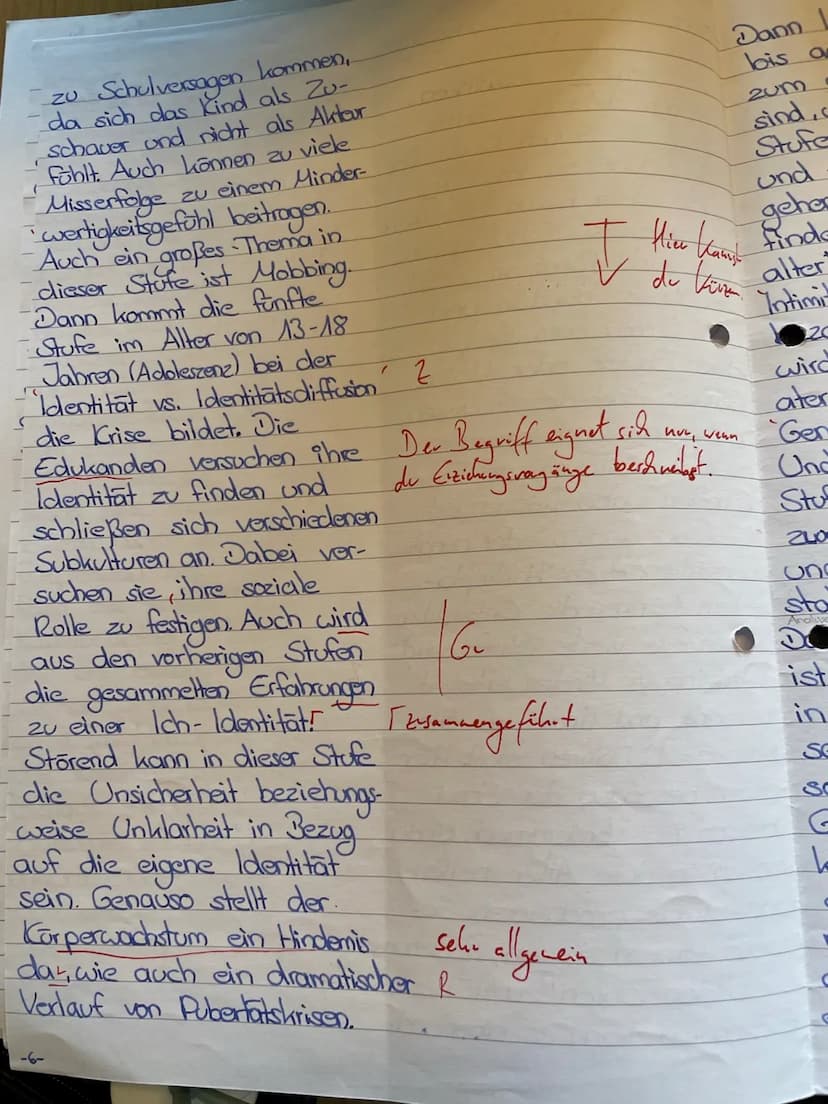 zu Schulversagen kommen,
da sich das Kind als Zu-
schauer und nicht als Aktar
fühlt. Auch können zu viele
Misserfolge zu einem Minder-
wertigkeitsgefühl beitragen.
Auch ein großes Thema in
dieser Stufe ist Mobbing.
Dann kommt die fünfte
Stufe im Alter von 13-18
Jahren (Adoleszenz) bei der
'Identität vs. Identitätsdiffusion'
die Krise bildet. Die
Edukanden versuchen ihre
Identität zu finden und
schließen sich verschiedenen
Subkulturen an. Dabei ver-
suchen sie, ihre soziale
Rolle zu festigen. Auch wird
aus den vorherigen Stufen
die gesammelten Erfahrungen
zu einer Ich-Identität.
Störend kann in dieser Stufe
die Unsicherheit beziehungs-
weise Unklarheit in Bezug
auf die eigene Identität
sein. Genauso stellt der
Körperwachstum ein Hindernis
dar, wie auch ein dramatischer
Verlauf von Pubertätskrisen.
-6-
Hier kannst
du kürzen
Z
Der Begriff eignet sich nur, wenn
du Erziehungsvorgänge beschreibst.
Gr
zusammengeführt
sehr allgemein
R
Dann
bis
zum
sind,
Stufe
und
gehen
finde
alter
Intimi
wird
ater
Und
Stuf
ist
in